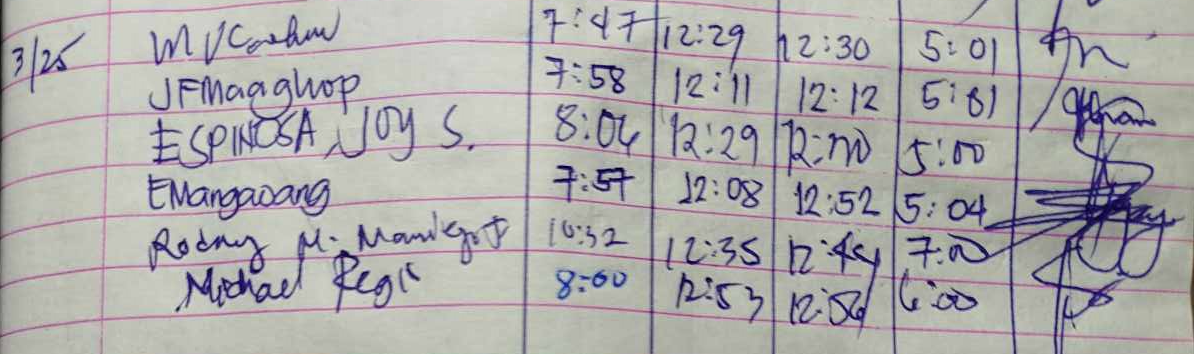 3/25 7:47 12:29 12:30 5:01
JFMaaghop 7:58 12:11 12:12 5:01
ESPINOSA, JOY S. 8:04 12:29 5:00
EMangaoang 7:57 12:08 12:52 5:04
Rodny M. 10:32 12:35 7:00
Michael Regis 8:00 12:53 12:56 6:00